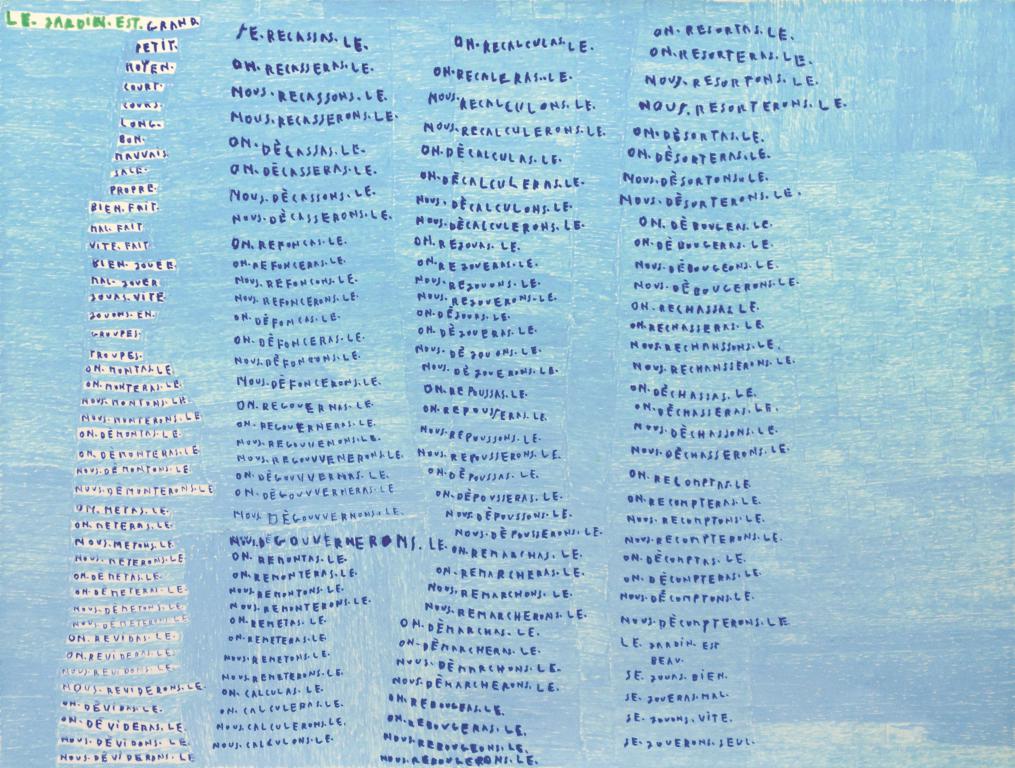 LE. JARDIN. EST. GRAND.
PETIT.
MOYEN.
COURT.
COURS.
LONG.
BON.
MAUVAIS.
SALE.
PROPRE.
BIEN. FAIT.
MAL. FAIT
VITE. FAIT
BIEN. JOUER.
MAL. JOUER
JOUAS. VITE
JOUONS. EN.
GROUPES.
TROUPES.
ON. MONTAS. LE.
ON. MONTERAS. LE.
NOUS. MONTONS. LE.
NOUS. MONTERONS. LE
ON. DÈMONTAS. LE.
ON. DÈMONTERAS. LE
NOUS. DÈMONTONS. LE.
NOUS. DÈMONTERONS. LE
ON. METAS. LE
ON. METERAS. LE.
NOUS. METONS. LE.
NOUS. METERONS. LE
ON. DÈMETAS. LE.
ON. DÈMETERAS. LE
NOUS. DÈMETONS. LE
NOUS. DÈMETERONS. LE
ON. REVIDAS. LE.
ON. REVIDERAS. LE.
NOUS. REVIDONS. LE
NOUS. REVIDERONS. LE.
ON. DÈVIDAS. LE.
ON. DÈVIDERAS. LE
NOUS. DÈVIDONS. LE
NOUS. DÈVIDERONS. LE
JE. RECASSAS. LE.
ON. RECASSERAS. LE.
NOUS. RECASSONS. LE.
NOUS. RECASSERONS. LE.
ON. DÈCASSAS. LE.
ON. DÈCASSERAS. LE.
NOUS. DÈCASSONS. LE.
NOUS. DÈCASSERONS. LE.
ON. REFONCAS. LE.
ON. REFONCERAS. LE.
NOUS. REFONCONS. LE.
NOUS. REFONCERONS. LE.
ON. DÈFONCAS. LE.
ON. DÈFONCERAS. LE.
NOUS. DÈFONCONS. LE.
NOUS. DÈFONCERONS. LE.
ON. REGOUVERNAS. LE.
ON. REGOUVERNERAS. LE.
NOUS. REGOUVERNONS. LE.
NOUS. REGOUVERNERONS. LE.
ON. DÈGOUVERNAS. LE
ON. DÈGOUVERNERAS. LE
NOUS. DÈGOUVERNONS. LE.
NOUS. DÈGOUVERNERONS. LE.
ON. REMONTAS. LE.
ON. REMONTERAS. LE.
NOUS. REMONTONS. LE.
NOUS. REMONTERONS. LE.
ON. REMETAS. LE.
ON. REMETERAS. LE
NOUS. REMETONS. LE.
NOUS. REMETERONS. LE.
ON. CALCULAS. LE.
ON. CALCULERAS. LE.
NOUS. CALCULERONS. LE.
NOUS. CALCULONS. LE.
ON. RECALCULAS. LE.
ON. RECALERAS. LE.
NOUS. RECALCULONS. LE.
NOUS. RECALCULERONS. LE.
ON. DÈCALCULAS. LE.
ON. DÈCALCULERAS. LE.
NOUS. DÈCALCULONS. LE.
NOUS. DÈCALCULERONS. LE.
ON. REJOUAS. LE.
ON. REJOUERAS. LE.
NOUS. REJOUONS. LE.
NOUS. REJOUERONS. LE.
ON. DÈJOUAS. LE.
ON. DÈJOUERAS. LE
NOUS. DÈJOUONS. LE.
NOUS. DÈJOUERONS. LE.
ON. REPOUSSAS. LE.
ON. REPOUSSERAS. LE.
NOUS. REPOUSSONS. LE.
NOUS. REPOUSSERONS. LE.
ON. DÈPOUSSAS. LE.
ON. DÈPOUSSERAS. LE.
NOUS. DÈPOUSSONS. LE.
NOUS. DÈPOUSSERONS. LE.
ON. REMARCHAS. LE.
ON. REMARCHERAS. LE.
NOUS. REMARCHONS. LE.
NOUS. REMARCHERONS. LE.
ON. DÈMARCHAS. LE.
ON. DÈMARCHERAS. LE.
NOUS. DÈMARCHONS. LE.
NOUS. DÈMARCHERONS. LE.
ON. REBOUGEAS. LE.
ON. REBOUGERAS. LE.
NOUS. REBOUGEONS. LE.
NOUS. REBOUGERONS. LE.
ON. RESORTAS. LE.
ON. RESORTERAS. LE.
NOUS. RESORTONS. LE.
NOUS. RESORTERONS. LE.
ON. DÈSORTAS. LE.
ON. DÈSORTERAS. LE.
NOUS. DÈSORTONS. LE.
NOUS. DÈSORTERONS. LE.
ON. DÈBOUGEAS. LE.
ON. DÈBOUGERAS. LE.
NOUS. DÈBOUGEONS. LE.
NOUS. DÈBOUGERONS. LE.
ON. RECHASSAS. LE
ON. RECHASSERAS. LE.
NOUS. RECHANSSONS. LE.
NOUS. RECHANSSERONS. LE.
ON. DÈCHASSAS. LE.
ON. DÈCHASSERAS. LE.
NOUS. DÈCHASSONS. LE.
NOUS. DÈCHASSERONS. LE.
ON. RECOMPTAS. LE
ON. RECOMPTERAS. LE.
NOUS. RECOMPTONS. LE.
NOUS. RECOMPTERONS. LE.
ON. DÈCOMPTAS. LE.
ON. DÈCOMPTERAS. LE
NOUS. DÈCOMPTONS. LE.
NOUS. DÈCOMPTERONS. LE
LE. JARDIN. EST
BEAU.
JE. JOUAS. BIEN.
JE. JOUERAS. MAL.
JE. JOUONS. VITE.
JE. JOUERONS. SEUL.